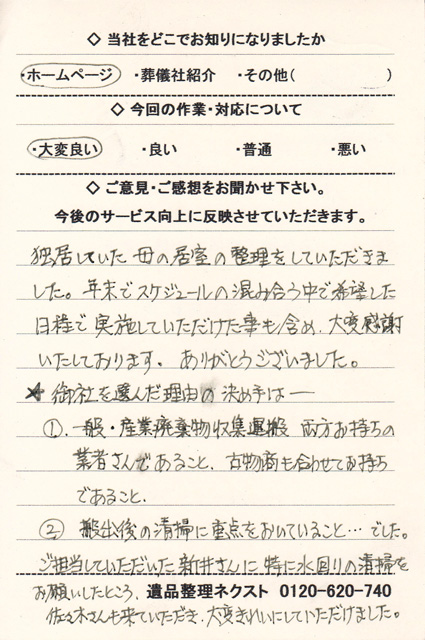 ◇ 当社をどこでお知りになりましたか
・ホームページ ・葬儀社紹介 ・その他( )
◇ 今回の作業・対応について
・大変良い ・良い ・普通 ・悪い
◇ ご意見・ご感想をお聞かせ下さい。
今後のサービス向上に反映させていただきます。
独居していた 母の居室の整理をしていただきま
した。年末でスケジュールの混み合う中で希望した
日程で実施していただけた事も含め、大変感謝
いたしております。ありがとうございました。
★ 御社を選んだ理由の決め手は―
①. 一般・産業廃棄物収集運搬 両方お持ちの
業者さんであること、古物商も合わせてお持ち
であること.
② 搬出後の清掃に重点をおいていること…でした。
ご担当していただいた新井さんに特に水回りの清掃を
お願いしたところ、 遺品整理ネクスト 0120-620-740
佐々木さんも来ていただき、大変きれいにしていただけました。